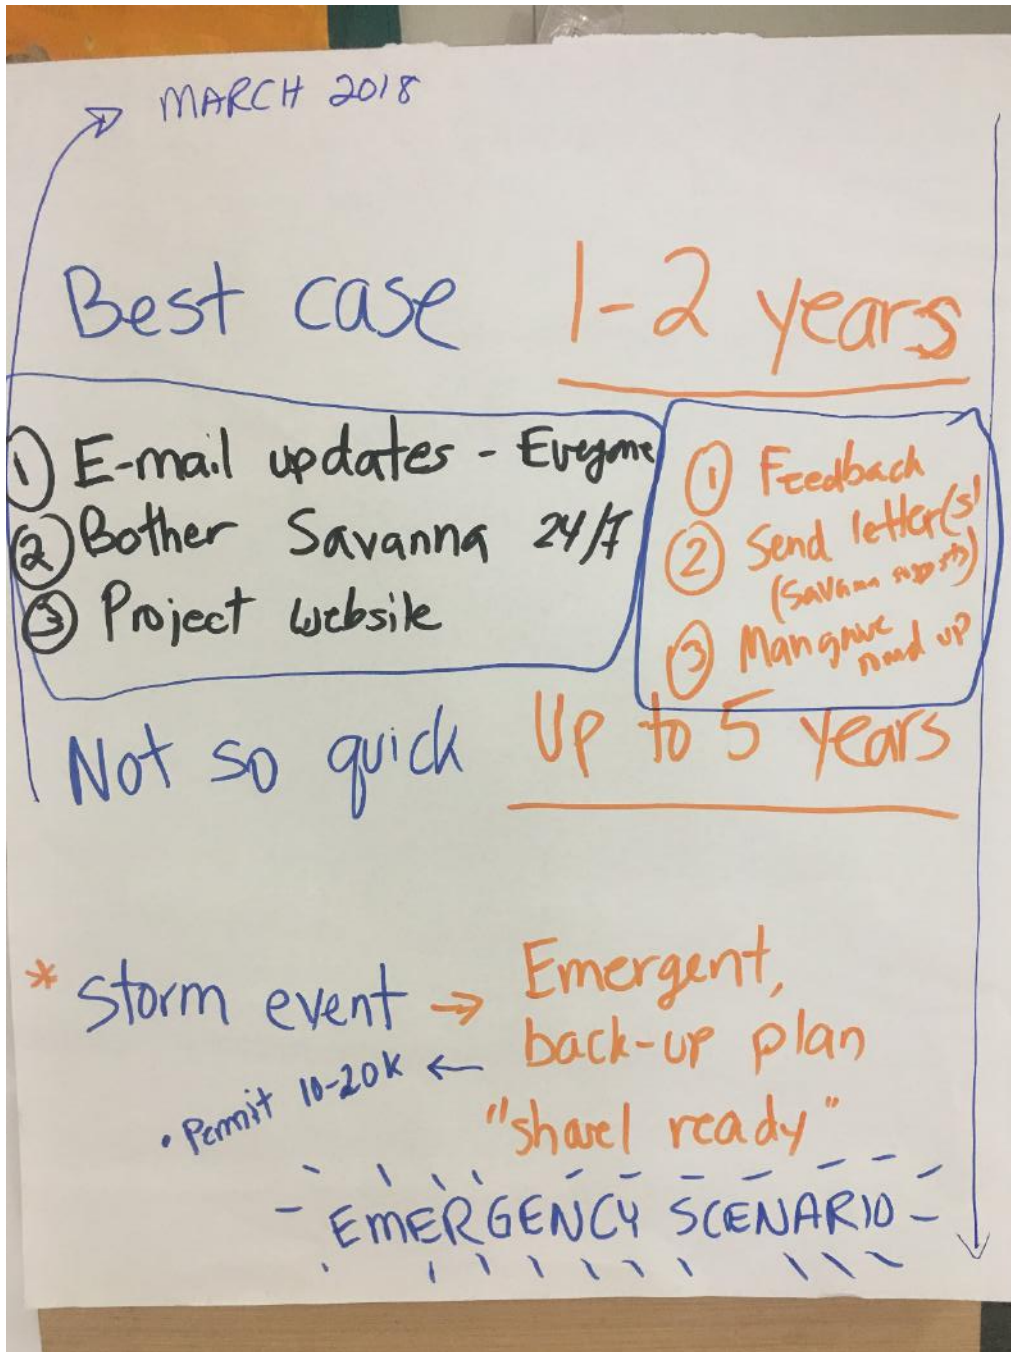 MARCH 2018
Best case 1-2 years
① E-mail updates - Everyone
② Bother Savanna 24/7
③ Project website
① Feedback
② Send letter(s)
(Savanna suggests)
③ Mangrove
round up
Not so quick Up to 5 years
* Storm event → Emergent,
back-up plan
• Permit 10-20K ←
"shovel ready"
EMERGENCY SCENARIO